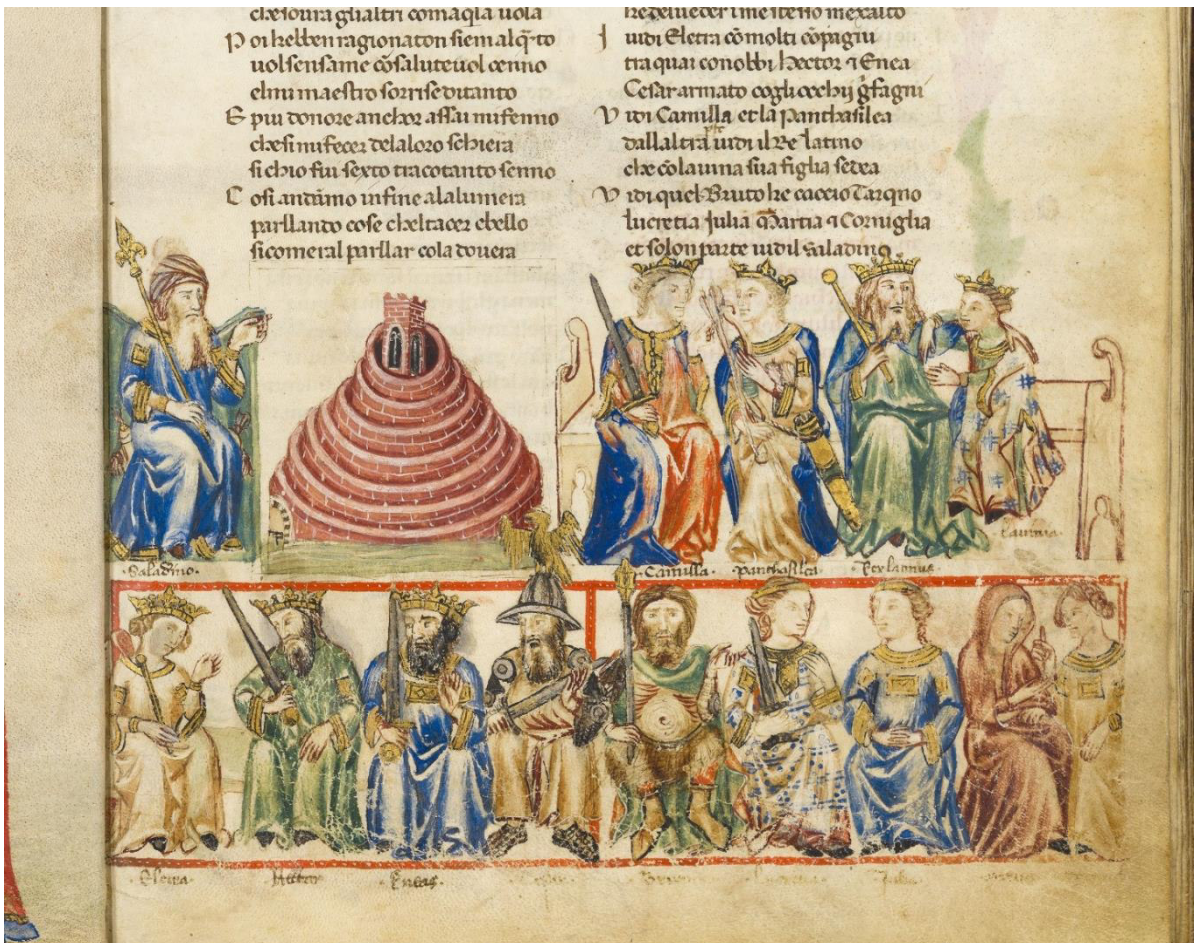 che soura gli altri com aq̄la uola
P oi hebben ragionato n̄siem alq̄to
uolsensame cō salute uol cenno
elmi maestro sorrise ditanto
E piu donore anchor assai mi fenno
chesi mi fecer de la loro schiera
si chio fui sexto tra cotanto senno
C osi andāmo infine ala lumera
parllando cose chel tacer e bello
si comera l parllar cola douera
I uidi Eletra cō molti cōpagni
tra quai conobbi hector ⁊ Enea
Cesar armato cogli occhij g̃fagni
V idi Camilla et la panthasilea
dallaltra pte uidi il Re latino
che cō lauina sua figlia sedea
V idi quel Bruto he caccio Tarq̄no
lucretia Julia Martia ⁊ Corniglia
et solon parte uidil saladino
·Saladino·
·Camilla·
·panthasilea·
·Rex latinus·
·Lauinia·
·Eletra·
·Hector·
·Eneas·
·Lucretia·
·Julia·